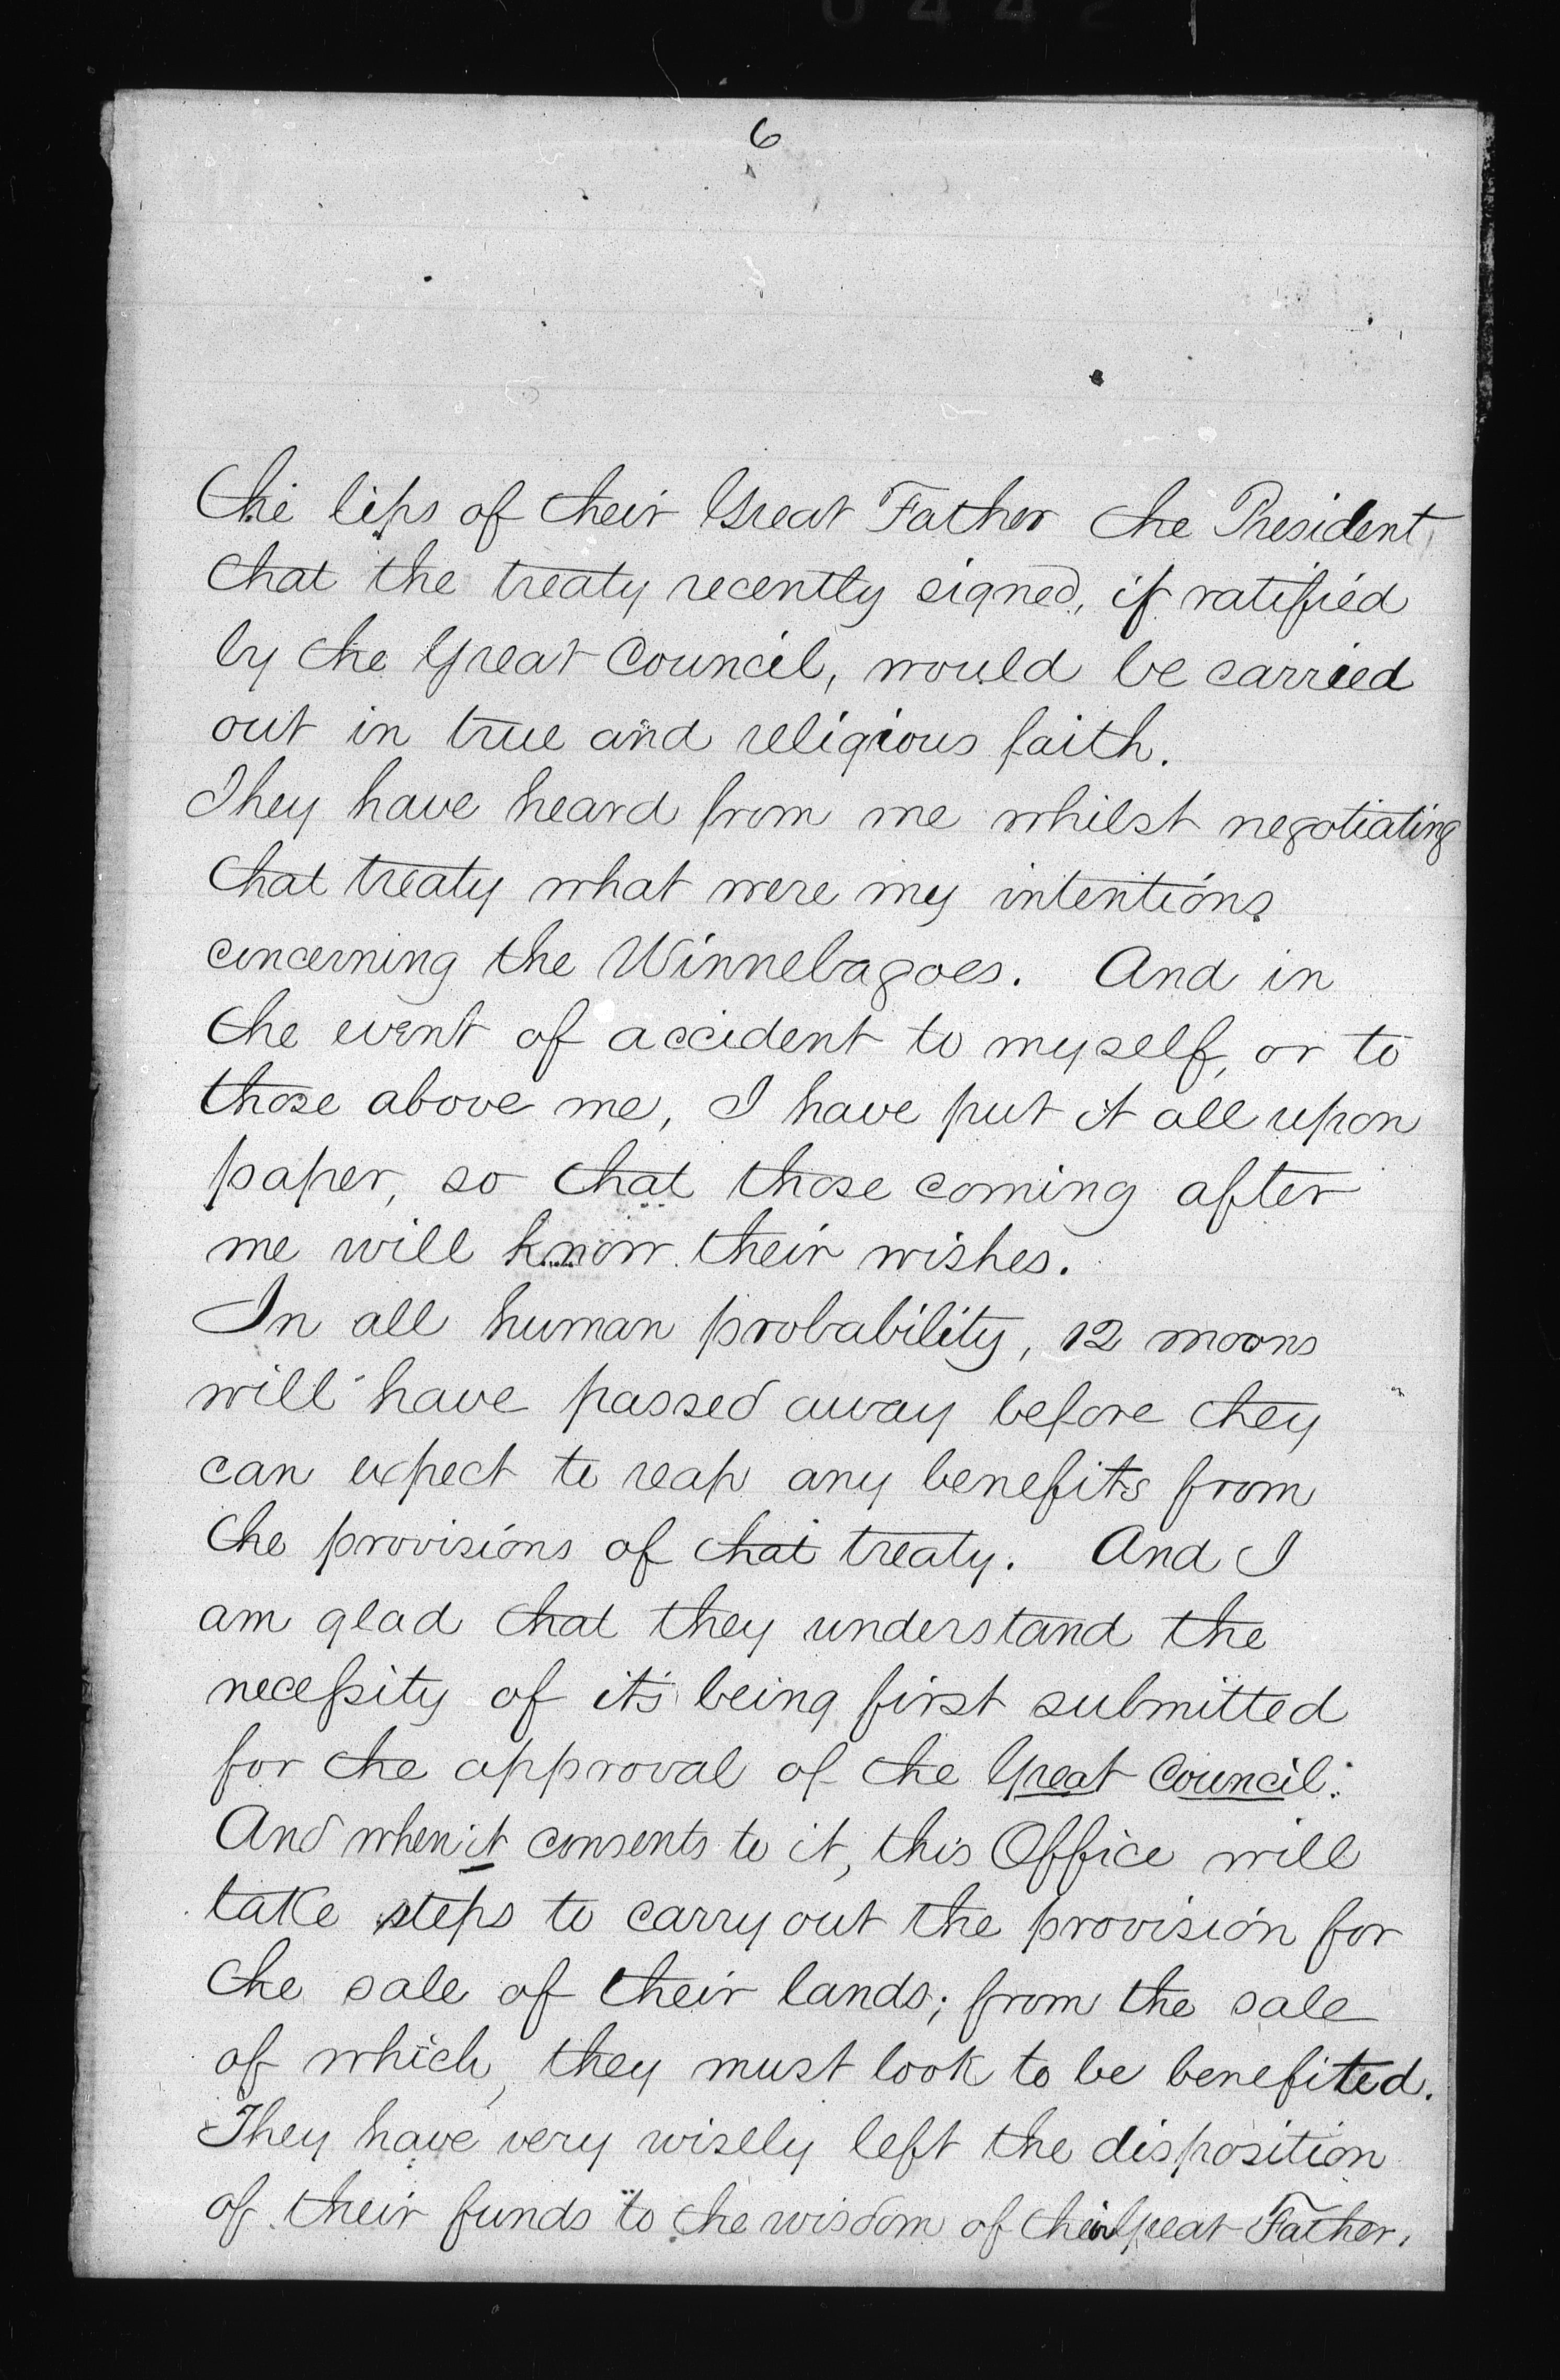 6
the lips of their Great Father the President,
that the treaty recently signed, if ratified
by the Great Council, would be carried
out in true and religious faith.
They have heard from me whilst negotiating
that treaty what were my intentions
concerning the Winnebagoes. And in
the event of accident to myself, or to
those above me, I have put it all upon
paper, so that those coming after
me will know their wishes.
In all human probability, 12 moons
will have passed away before they
can expect to reap any benefits from
the provisions of that treaty. And I
am glad that they understand the
necessity of it's being first submitted
for the approval of the Great Council:
And when it consents to it, this Office will
take steps to carry out the provision for
the sale of their lands; from the sale
of which, they must look to be benefited.
They have very wisely left the disposition
of their funds to the wisdom of their Great Father.